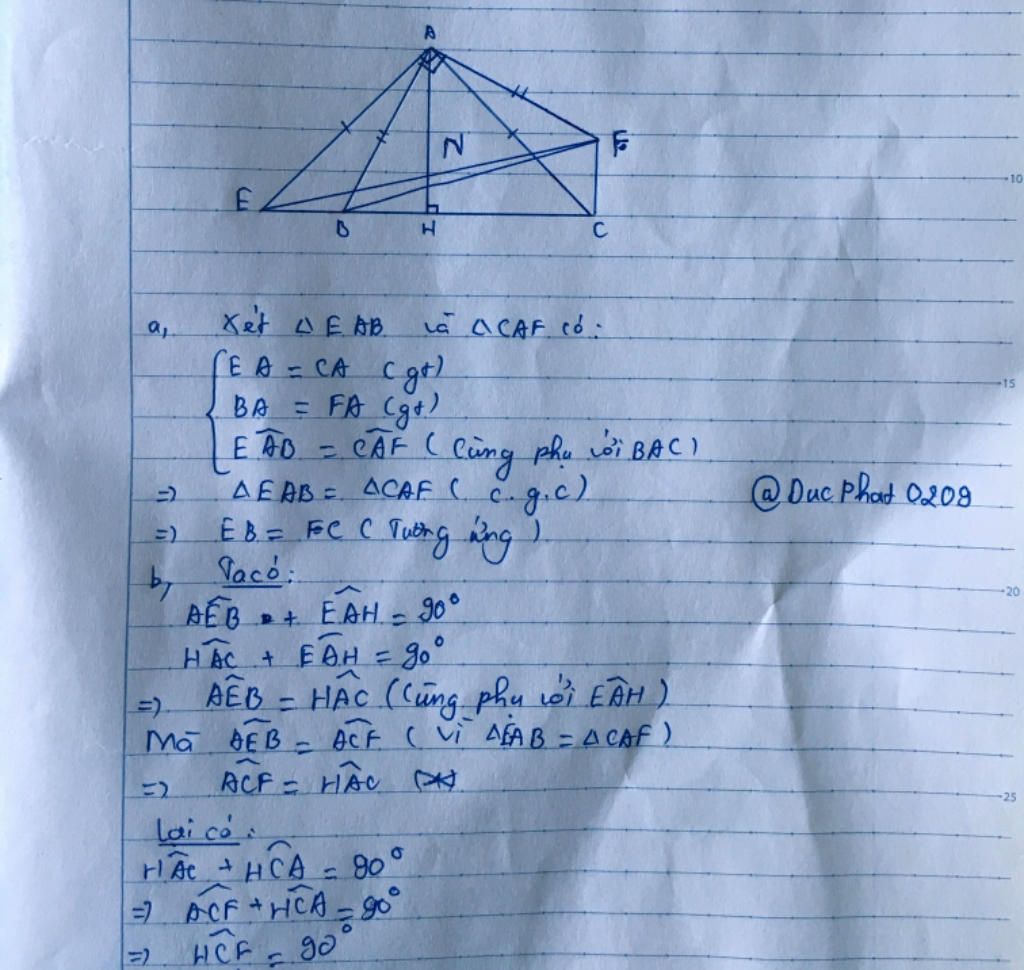 A
N
F
E
B
H
C
10
a, Xét Δ EAB và ΔCAF có:
EA = CA (gt)
15
BA = FA (gt)
EÂB = CÂF (Cùng phụ với BAC)
=> ΔEAB = ΔCAF ( c.g.c)
@Duc Phat 0209
=> EB = FC ( Tương ứng )
b, Ta có:
20
AÊB + EÂH = 90°
HÂC + EÂH = 90°
=> AÊB = HÂC (Cùng phụ với EÂH)
Mà AÊB = AĈF ( Vì ΔEAB = ΔCAF )
=> AĈF = HÂC (*)
25
Lại có:
HÂC + HĈA = 90°
=> AĈF + HĈA = 90°
=> HĈF = 90°